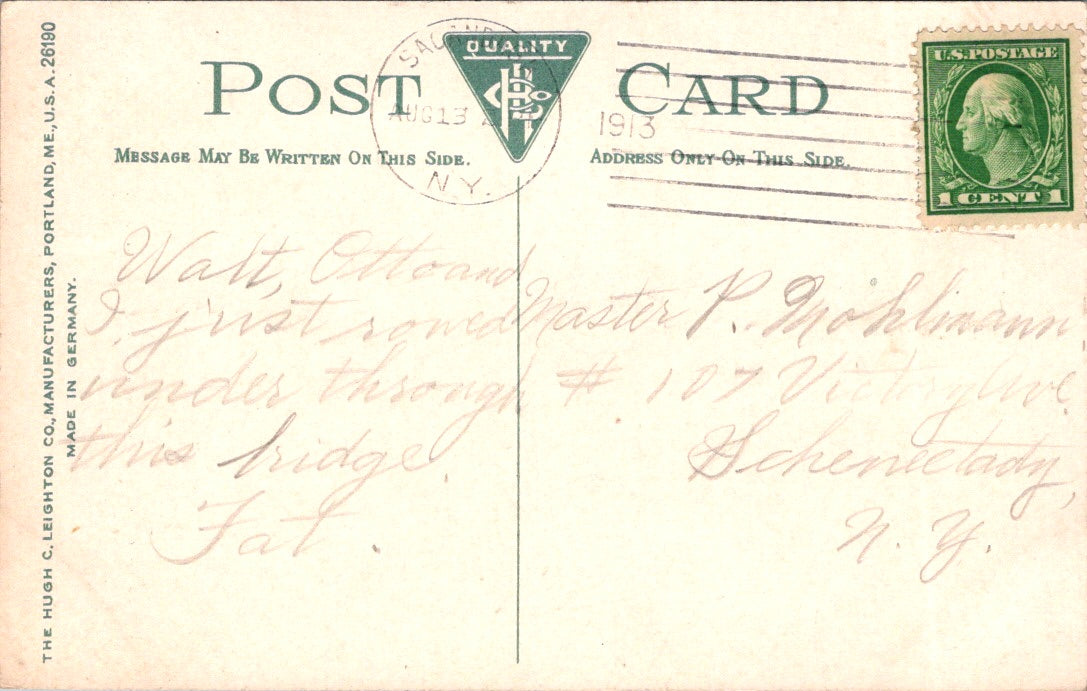 POST CARD
QUALITY
MESSAGE MAY BE WRITTEN ON THIS SIDE.
ADDRESS ONLY ON THIS SIDE.
AUG 13
1913
N.Y.
U.S. POSTAGE
1 CENT 1
THE HUGH C. LEIGHTON CO., MANUFACTURERS, PORTLAND, ME., U.S.A. 26190
MADE IN GERMANY.
Walt, Otto and
I just rowed
under through
this bridge.
Fat.
Master P. Mohlmann
# 107 Victory Ave
Schenectady,
N. Y.